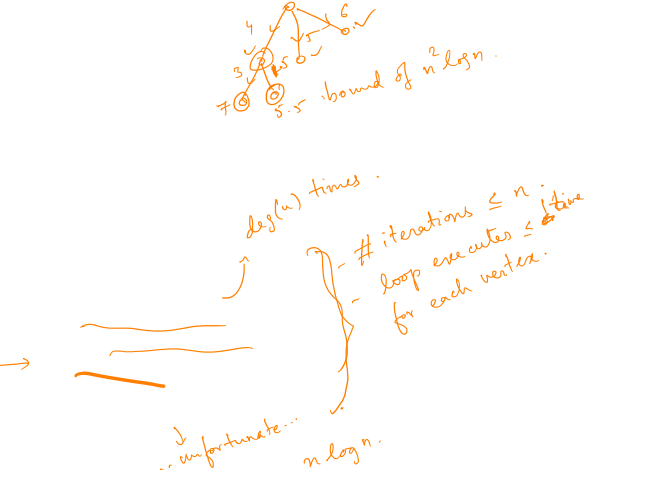 4
6
5
3
7
5.5
bound of n² log n.
deg(u) times.
# iterations ≤ n.
loop executes ≤ 1 time
for each vertex.
... unfortunate...
n log n.